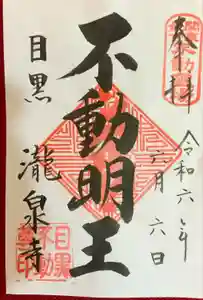 奉拝
令和六年
六月六日
不動明王
目黒
瀧泉寺
目黒
不動
尊印